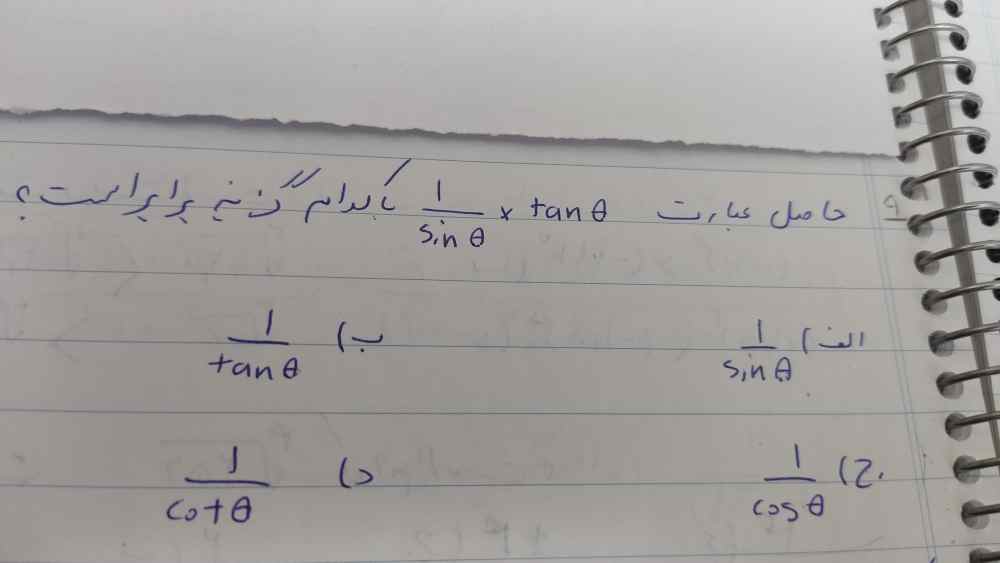 ۹ حاصل عبارت 1/sin θ × tan θ با کدام گزینه برابر است؟
الف) 1/sin θ ب) 1/tan θ
ج) 1/cos θ د) 1/cot θ